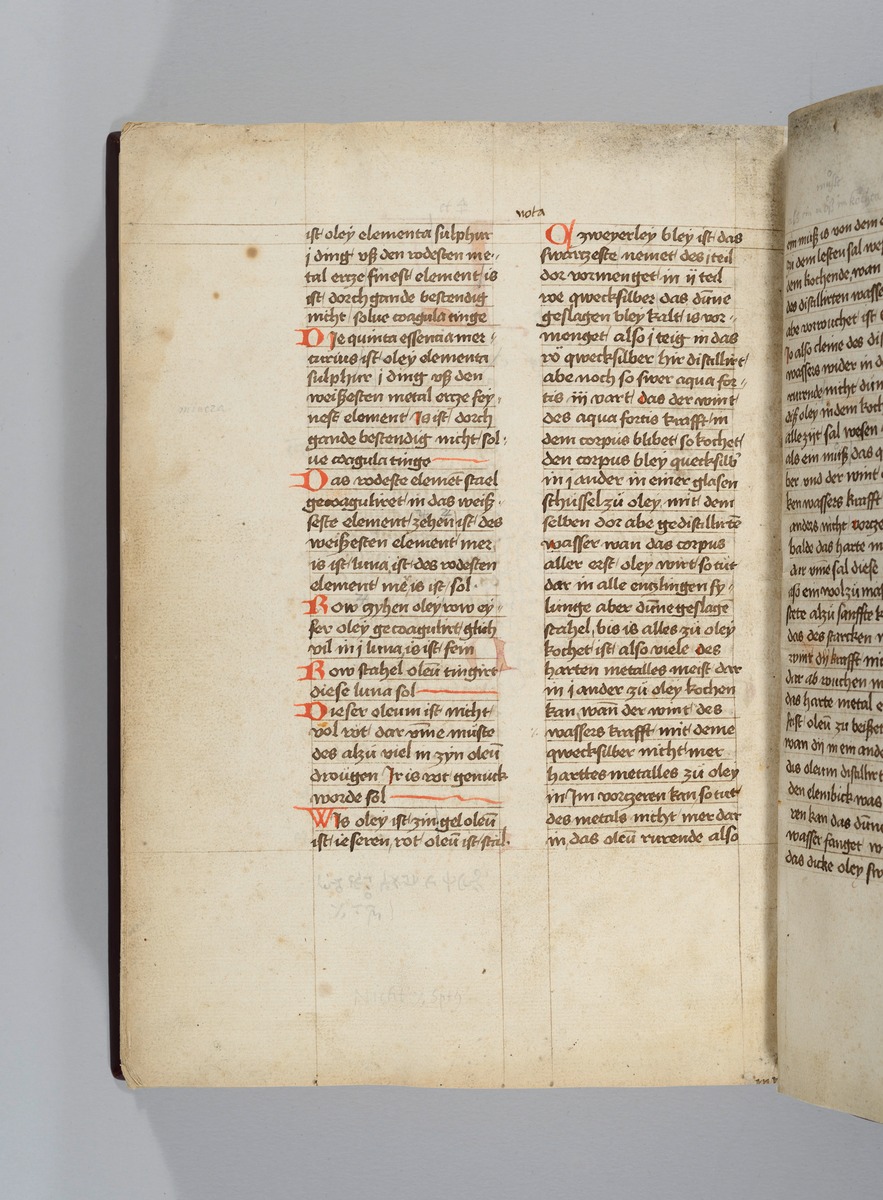 nota
ist oley elementa sulphur
j ding vß den rodesten me-
tal ertze finest element is
ist dorch gande bestendig
nicht solue coagula tinge
Die quinta essencia mer
curius ist oley elementa
sulphur j ding vß den
weißesten metal ertze fey
nest element Is ist dorch
gande bestendig nicht sol
ue coagula tinge
Das rodeste elemēt stael
gecoaguliret in das weiß
seste element zehen ist des
weißesten element mer
is ist luna ist des rodesten
element me is ist sol
Row cyhen oley row ey
ser oley gecoagulirt glich
vil in j luna is ist fein
Row stahel oleū tingirt
diese luna sol
Dieser oleum ist nicht
vol rot dar vme muste
des alzu viel in zyn oleū
drougen Ir is rot genuck
worde sol
Wis oley ist zin gel oleū
ist ieseren rot oleū ist stal
zweyerley bley ist das
swartzeste nemet des j teil
dor vormenget in ij teil
roe qwecksilber das dūne
geslagen bley kalt is vor
menget also j teig in das
ro qwecksilber hir distillirt
abe noch so swer aqua for
tis iij vart das der wint
des aqua fortis krafft in
dem corpus blibet so kochet
den corpus bley quecksilb
in j ander in einer glasen
schussel zu oley mit dem
selben dor abe gedistillirtē
wasser wan das corpus
aller erst oley wirt so tut
dar in alle entzlingen sy
lunge aber dūne geslage
stahel bis is alles zu oley
kochet ist also viele des
harten metalles meist dar
in j ander zu oley kochen
kan wan der wint des
wassers krafft mit deme
qwecksilber nicht mer
hartes metalles zu oley
in Im vortzeren kan so tut
des metals nicht mer dar
in das oleū rurende also
em muß is von dem
zu dem lesten sal we
dem kochende wan
des distillirten wasse
abe vorrouchet ist
jo also cleine des dis
wassers wider in d
rurende nicht dun
diß oley in dem koch
alle zijt sal wesen
als ein muß das q
ber vnd der wint
ken wassers krafft
anders nicht vortze
balde das harte m
dar vme sal diese
so em wol zu mas
stete alzu sanffte k
das des starcken
wint dij krafft nit
dar ab rouchen
das harte metal e
jst oleū zu beißet
wan dij in em ande
dis oleum distillirt
den elembick was
ren kan das dūne
wasser fanget
das dicke oley sw